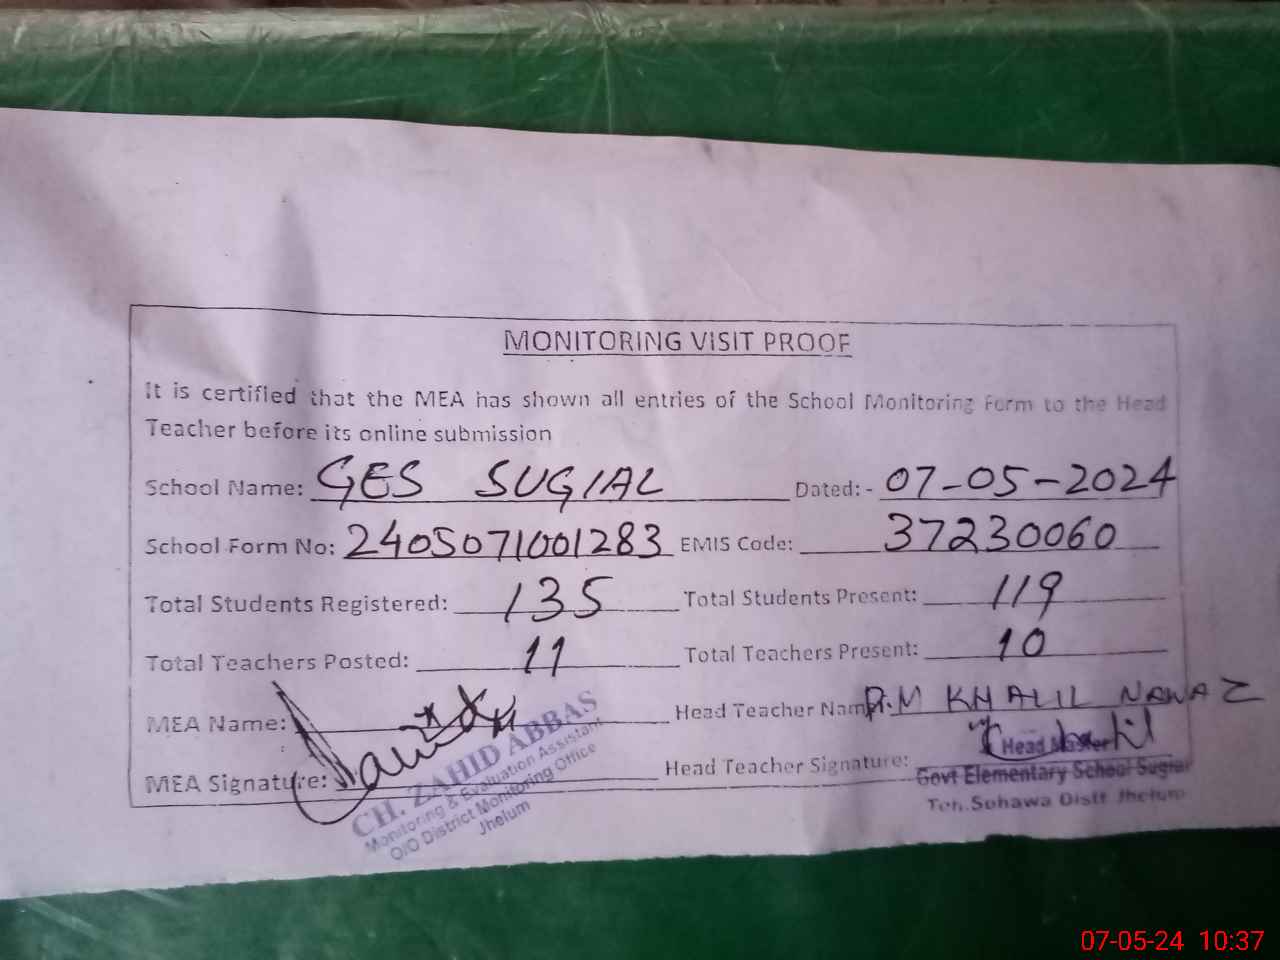 MONITORING VISIT PROOF
It is certified that the MEA has shown all entries of the School Monitoring Form to the Head
Teacher before its online submission
School Name: GES SUGIAL Dated:- 07-05-2024
School Form No: 2405071001283 EMIS Code: 37230060
Total Students Registered: 135 Total Students Present: 119
Total Teachers Posted: 11 Total Teachers Present: 10
MEA Name: Head Teacher Name: M KHALIL NAWAZ
MEA Signature: Head Teacher Signature:
CH. ZAHID ABBAS
Monitoring & Evaluation Assistant
O/O District Monitoring Office
Jhelum
Head Master
Govt Elementary School Sugial
Teh. Sohawa Distt Jhelum
07-05-24 10:37